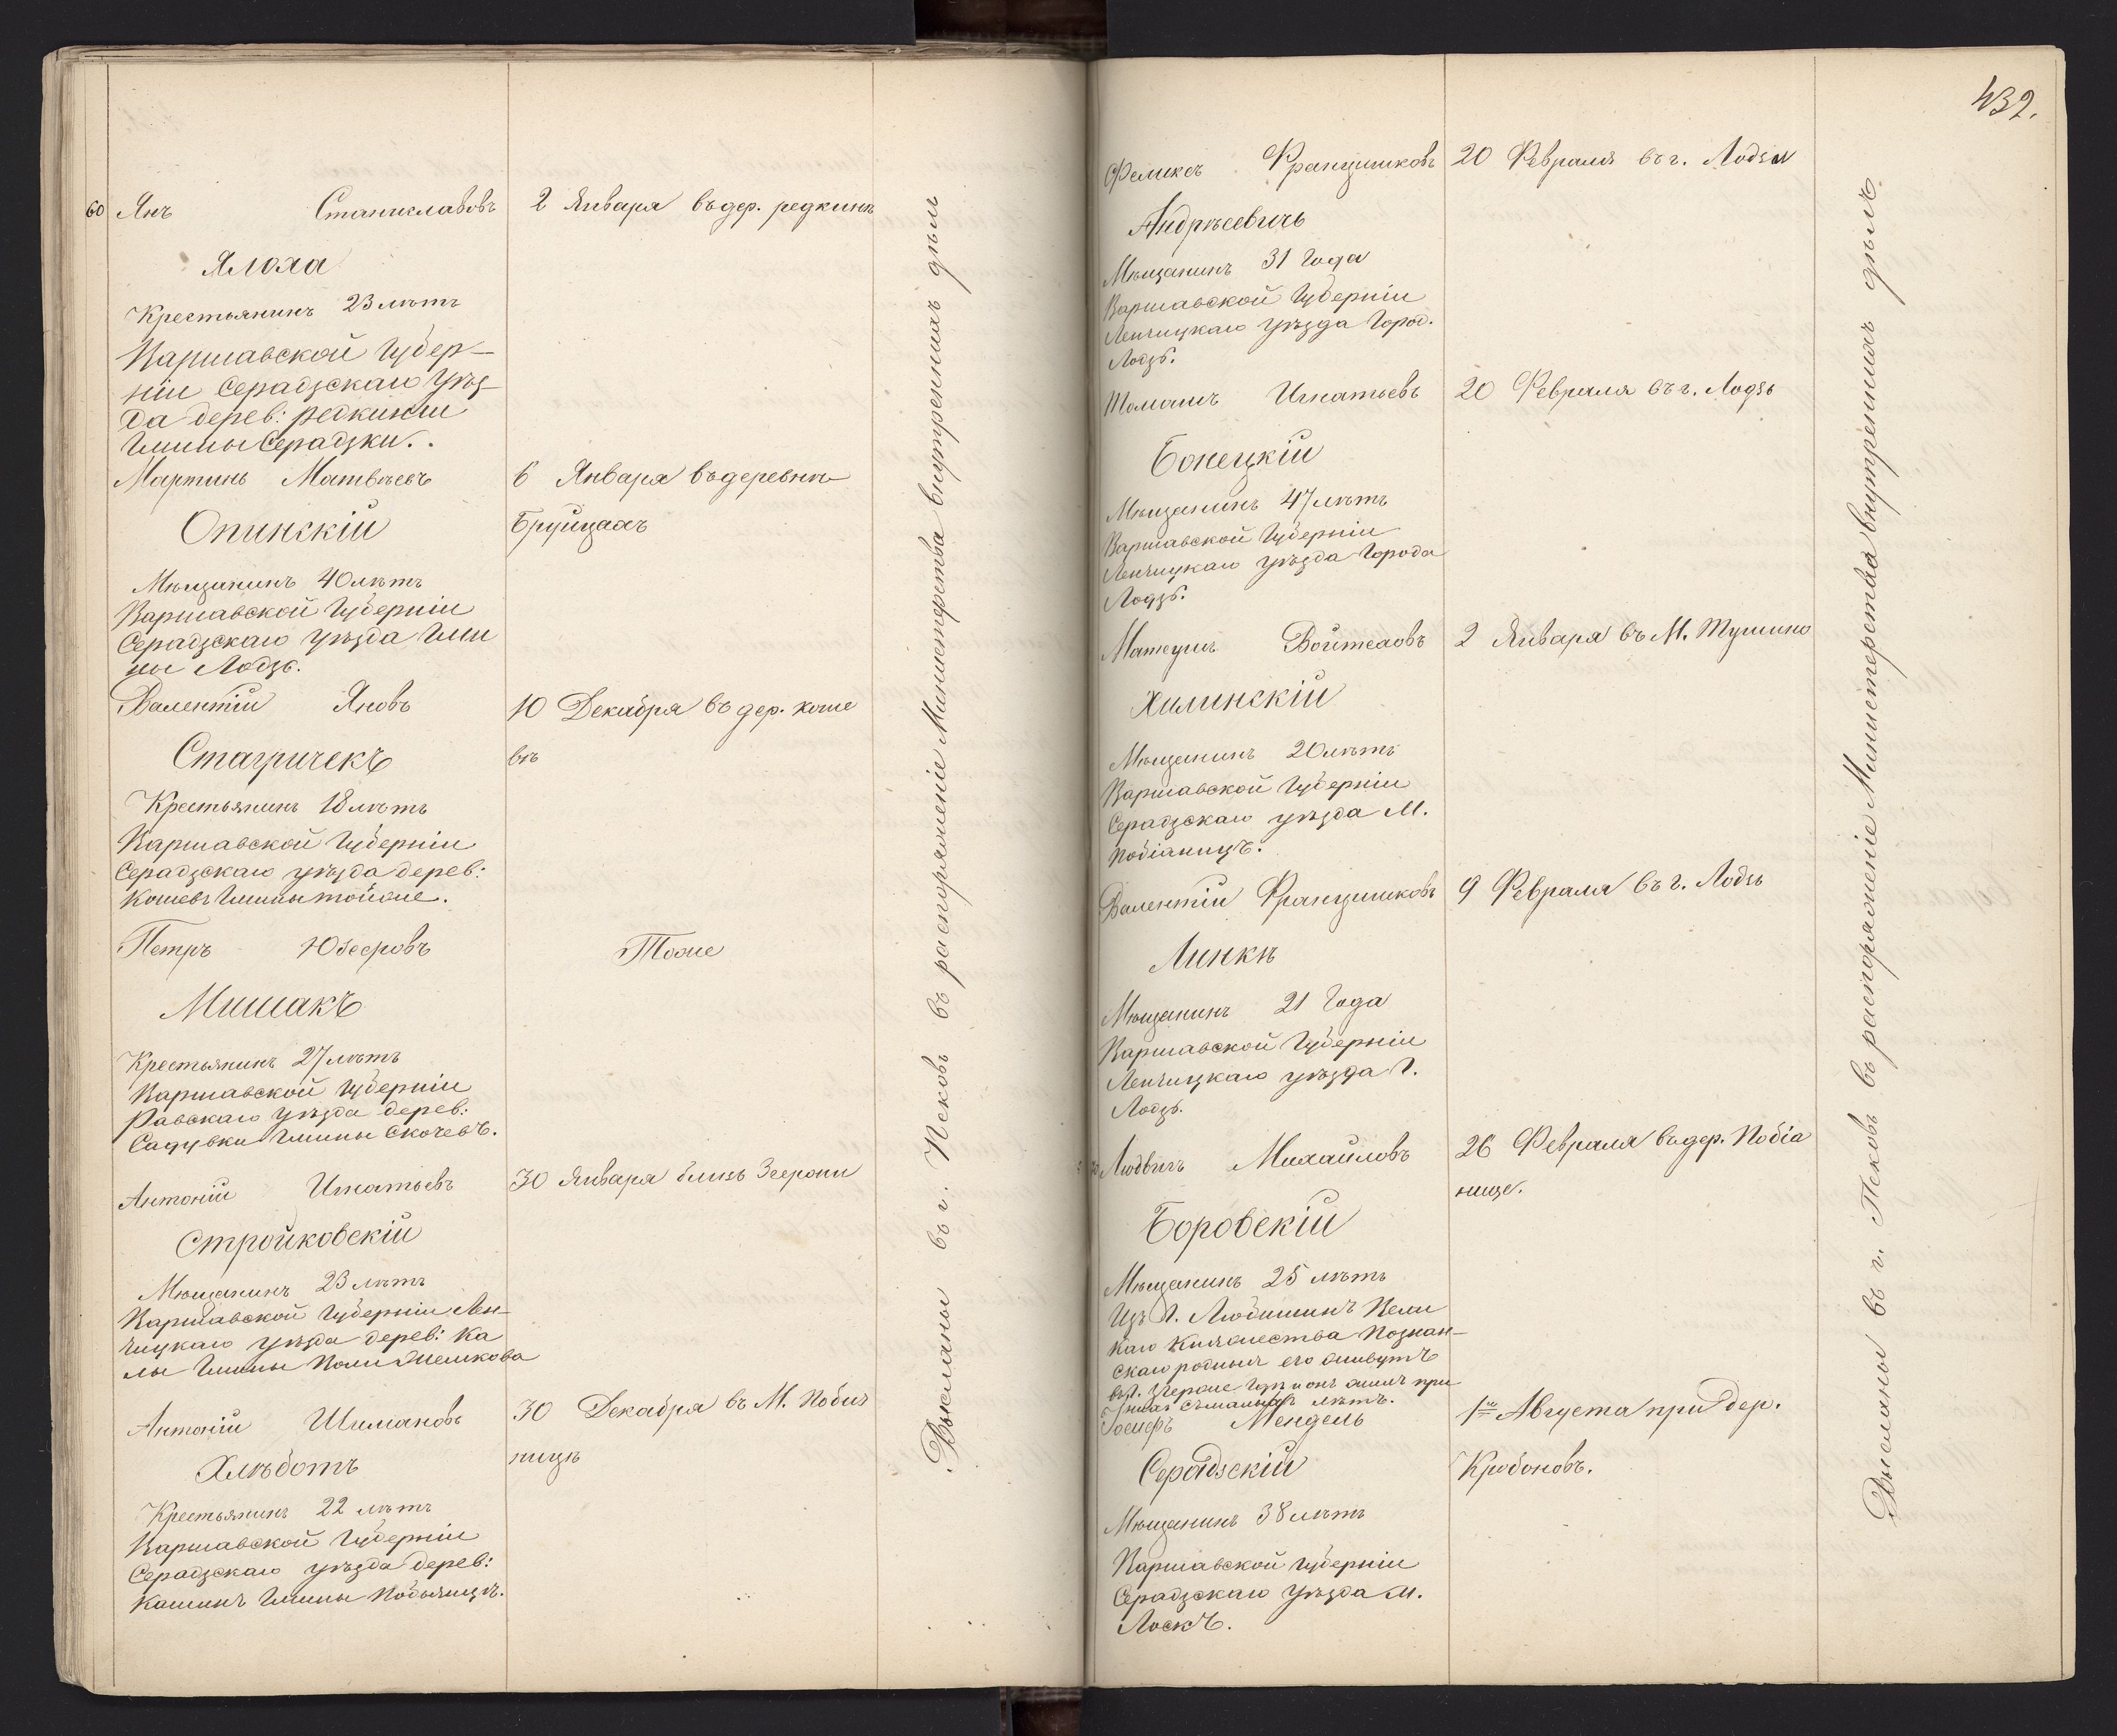 60 Янъ Станиславовъ
2 Января въ дер. редкинъ
Ялоха
Крестьянинъ 23 лѣтъ
Варшавской Губер-
ніи Серадзскаго Уѣз-
да дерев: редкини
Гмины Серадзки.
Мартинъ Матвѣевъ
6 Января въ деревнѣ
Опинскій
Бруйцахъ
Мѣщанинъ 40 лѣтъ
Варшавской Губерніи
Серадзскаго уѣзда Гми
ны Лодзь.
Валентій Яновъ
10 Декабря въ дер. коше
Стагричекъ
вѣ
Крестьянинъ 18 лѣтъ
Варшавской Губерніи
Серадзскаго уѣзда дерев:
Кошевъ Гмины тойже.
Петръ Юзефовъ
Тоже
Мишакъ
Крестьянинъ 27 лѣтъ
Варшавской Губерніи
Равскаго Уѣзда дерев:
Садувки Гмины Скочевъ.
Антоній Игнатьевъ
30 Января близь Згерони
Стройковскій
Мѣщанинъ 23 лѣтъ
Варшавской Губерніи Лен-
чицкаго уѣзда дерев: Ка
лы Гмины
Антоній Шимановъ
30 Декабря въ М. Побія
Хлѣботъ
ницѣ
Крестьянинъ 22 лѣтъ
Варшавской Губерніи
Серадзскаго уѣзда дерев:
Кашинъ Гмины Побьяницъ.
Высланы въ г. Псковъ въ распоряженіе Министерства внутреннихъ дѣлъ
432.
Феликсъ Францишковъ
20 Февраля въ г. Лодзи
Андрѣевичъ
Мѣщанинъ 31 Года
Варшавской Губерніи
Ленчицкаго уѣзда Город.
Лодзь.
Томашъ Игнатьевъ
20 Февраля въ г. Лодзь
Бонецкій
Мѣщанинъ 47 лѣтъ
Варшавской Губерніи
Ленчицкаго уѣзда Города
Лодзь.
Матеушъ Войтеховъ
2 Января въ М. Тушино
Хилинскій
Мѣщанинъ 20 лѣтъ
Варшавской Губерніи
Серадзскаго уѣзда М.
Побіаницъ.
Валентій Францишковъ
9 Февраля въ г. Лодзь
Линкѣ
Мѣщанинъ 21 Года
Варшавской Губерніи
Ленчицкаго уѣзда Г.
Лодзь.
Людвигъ Михайловъ
26 Февраля въ дер. Побіа
нице.
Боровскій
Мѣщанинъ 25 лѣтъ
Изъ Г. Любишинъ Вели
каго Княжества Познан-
скаго родные его живутъ
въ Г. Згерже и онъ жилъ при
нихъ лѣтъ.
Іосифъ Мендель
1го Августа при дер.
Серадзскій
Кробоновъ.
Мѣщанинъ 38 лѣтъ
Варшавской Губерніи
Серадзскаго Уѣзда М.
Ласкъ.
Высланы въ г. Псковъ въ распоряженіе Министерства внутреннихъ дѣлъ